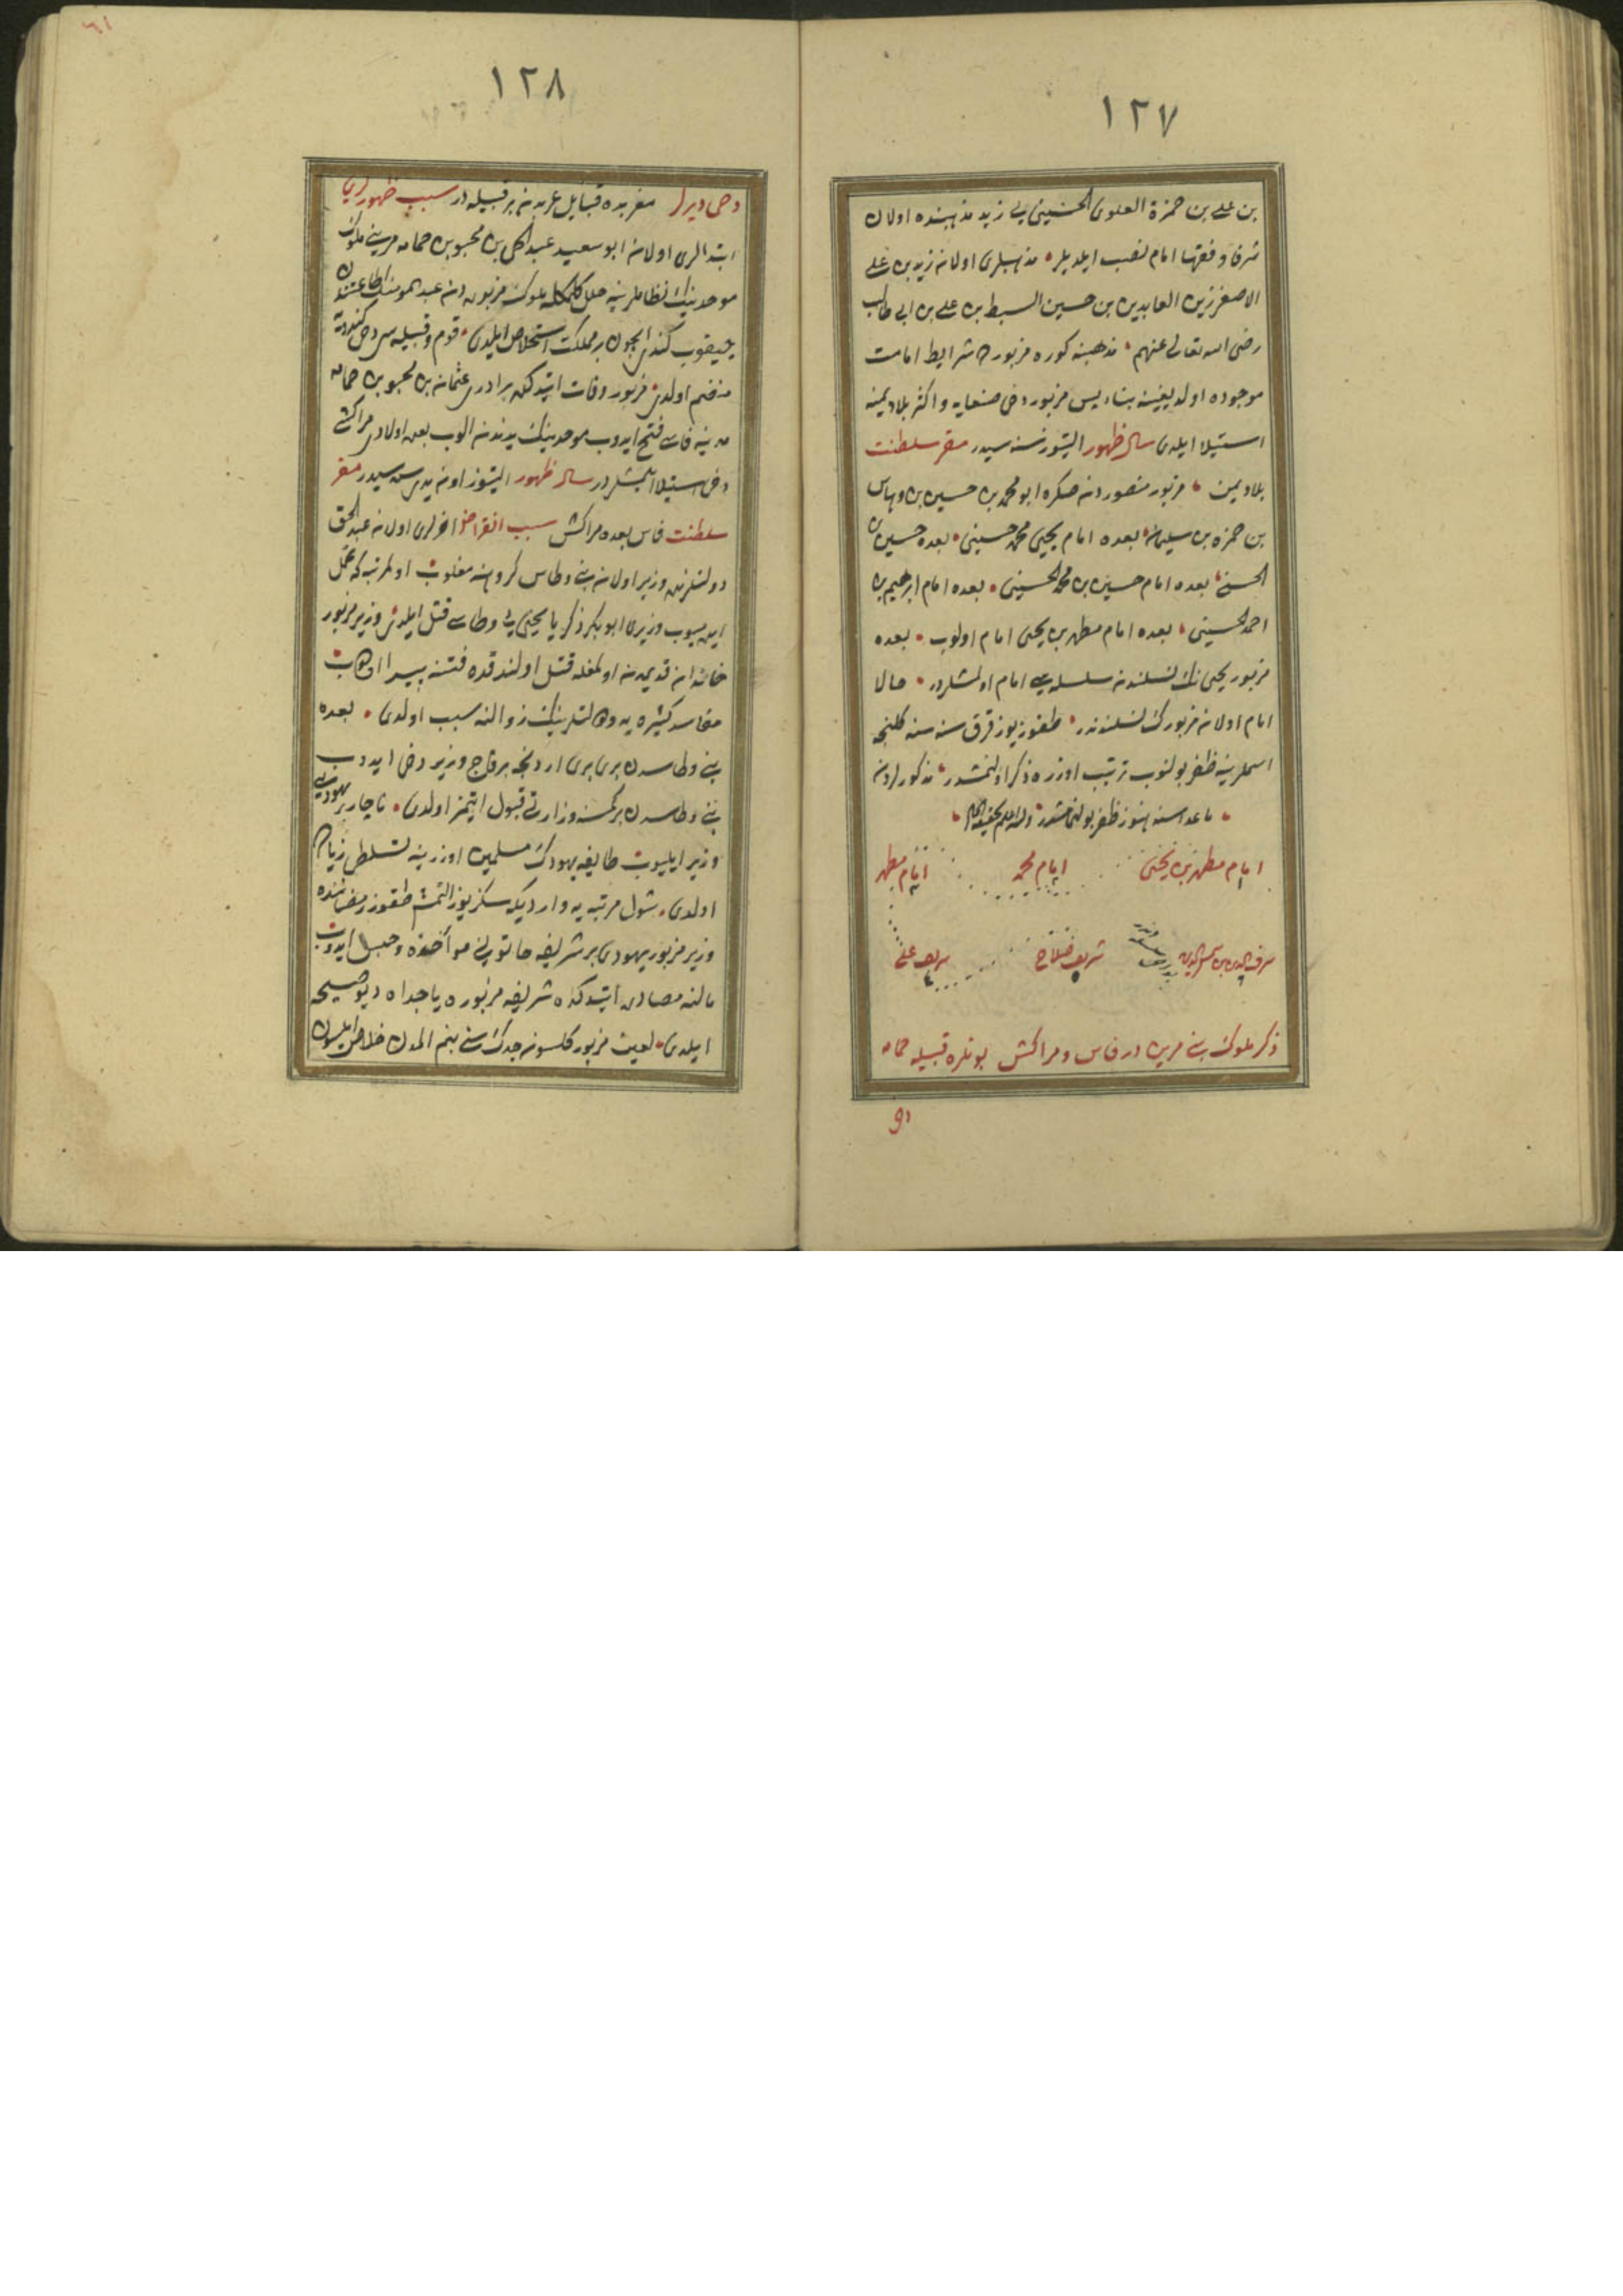 ١٢٧
بن علي بن حمزة العلوى الحسينى يى زيد مذهبنده اولان
شرفا و فقها امام نصب ايلديلر مذهبلرى اولان زيد بن علي
الاصغر زين العابدين بن حسين السبط بن علي بن ابى طالب
رضى الله تعالى عنهم مذهب مزبوره شرايط امامت
موجوده اولديغينه بناء يس مزبور دخى صنعايه و اكثر بلاد يمنه
استيلا ايلدى سال ظهور اليتيوز سنه سيدر مقر سلطنت
بلاد يمن مزبور منصوردنصكره ابو محمد بن حسين بن وهاس
بن حمزه بن سليمان بعده امام يحيى محمد حسينى بعده حسين بن
الحسنى بعده امام حسين بن محمد الحسينى بعده امام ابرهيم بن
احمد الحسينى بعده امام مطهر بن يحيى امام اولوب بعده
مزبور يحيى نك نسلندن سلسله يى امام اولمشلردر حالا
امام اولان مزبورك نسلندندر طقوز يوز قرق سنه سنه كلنجه
اسملرينه ظفر بولنوب ترتيب اوزره ذكر اولنمشدر مذكورلردن
ماعداسنه هنوز ظفر بولنمامشدر والله اعلم
امام مطهر بن يحيى امام محمد امام مطهر
شرف الدين بن شمس الدين شريف صلاح شريف علي
ذكر ملوك بنى مرين در فاس و مراكش بونلره قبيله حمامه
١٢٨
دخى ديرلر مغربده قبايل عربدن بر قبيله در سبب ظهورلرى
ابتدالرى اولان ابو سعيد عبد الحق بن محيو بن حمامه مرينى ملوك
موحدينك نظاملرينه خلل كلمكله ملوك مزبوره دن عبد المؤمنك اطاعتندن
چيقوب كندى ايچون بر مملكت استخلاص ايلدى قوم و قبيله سى دخى كندويه
منضم اولدى مزبور وفات ايتدكده برادرى عثمان بن محيو بن حمامه
مدينه فاسى فتح ايدوب موحدينك يدندن الوب بعده اولادى مراكشى
دخى استيلا ايتمشلردر سال ظهور اليتيوز اون يدى سنه سيدر مقر
سلطنت فاس بعده مراكش سبب انقراض اخرلرى اولان عبد الحق
دولتلرنده وزير اولان بنى وطاس كروهنه مغلوب اولمرتبه كه تحمل
ايده ميوب وزيرى ابو بكر ذكريا يحيى يى وطاسى قتل ايلدى وزير مزبور
خاندان قديمدن اولمغله قتل اولندقده فتنه پيدا اولوب
مفاسد كثيره يه و دولتلرينك زوالنه سبب اولدى بعده
بنى وطاسدن برى برى اردنجه برقاچ وزير دخى ايدوب
بنى وطاسدن بر كمسنه وزارتى قبول ايتمز اولدى ناچار بر يهوديى
وزير ايليوب طايفه يهودك مسلمين اوزرينه تسلطى زياده
اولدى شول مرتبه يه وارديكه سكز يوز التمش طقوز رمضاننده
وزير مزبور يهودى بر شريفه خاتونى مواخذه و حبس ايدوب
مالنه مصادره ايتدكده شريفه مزبوره يا جداه ديو صيحه
ايلدى لعين مزبور كلسون جدك سنى بنم المدن خلاص ايلسون